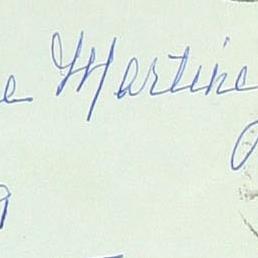 e Martine